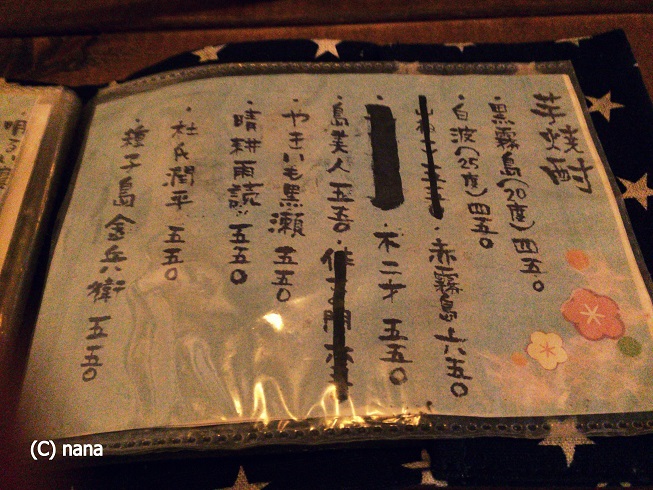 芋焼酎
・黒霧島(20度)四五〇
・白波(25度)四五〇
・赤霧島 六五〇
・不二才 五五〇
・島美人 五五〇
・やきいも黒瀬 五五〇
・晴耕雨読 五五〇
・杜氏潤平 五五〇
・種子島金兵衛 五五〇
・明るい
(C) nana